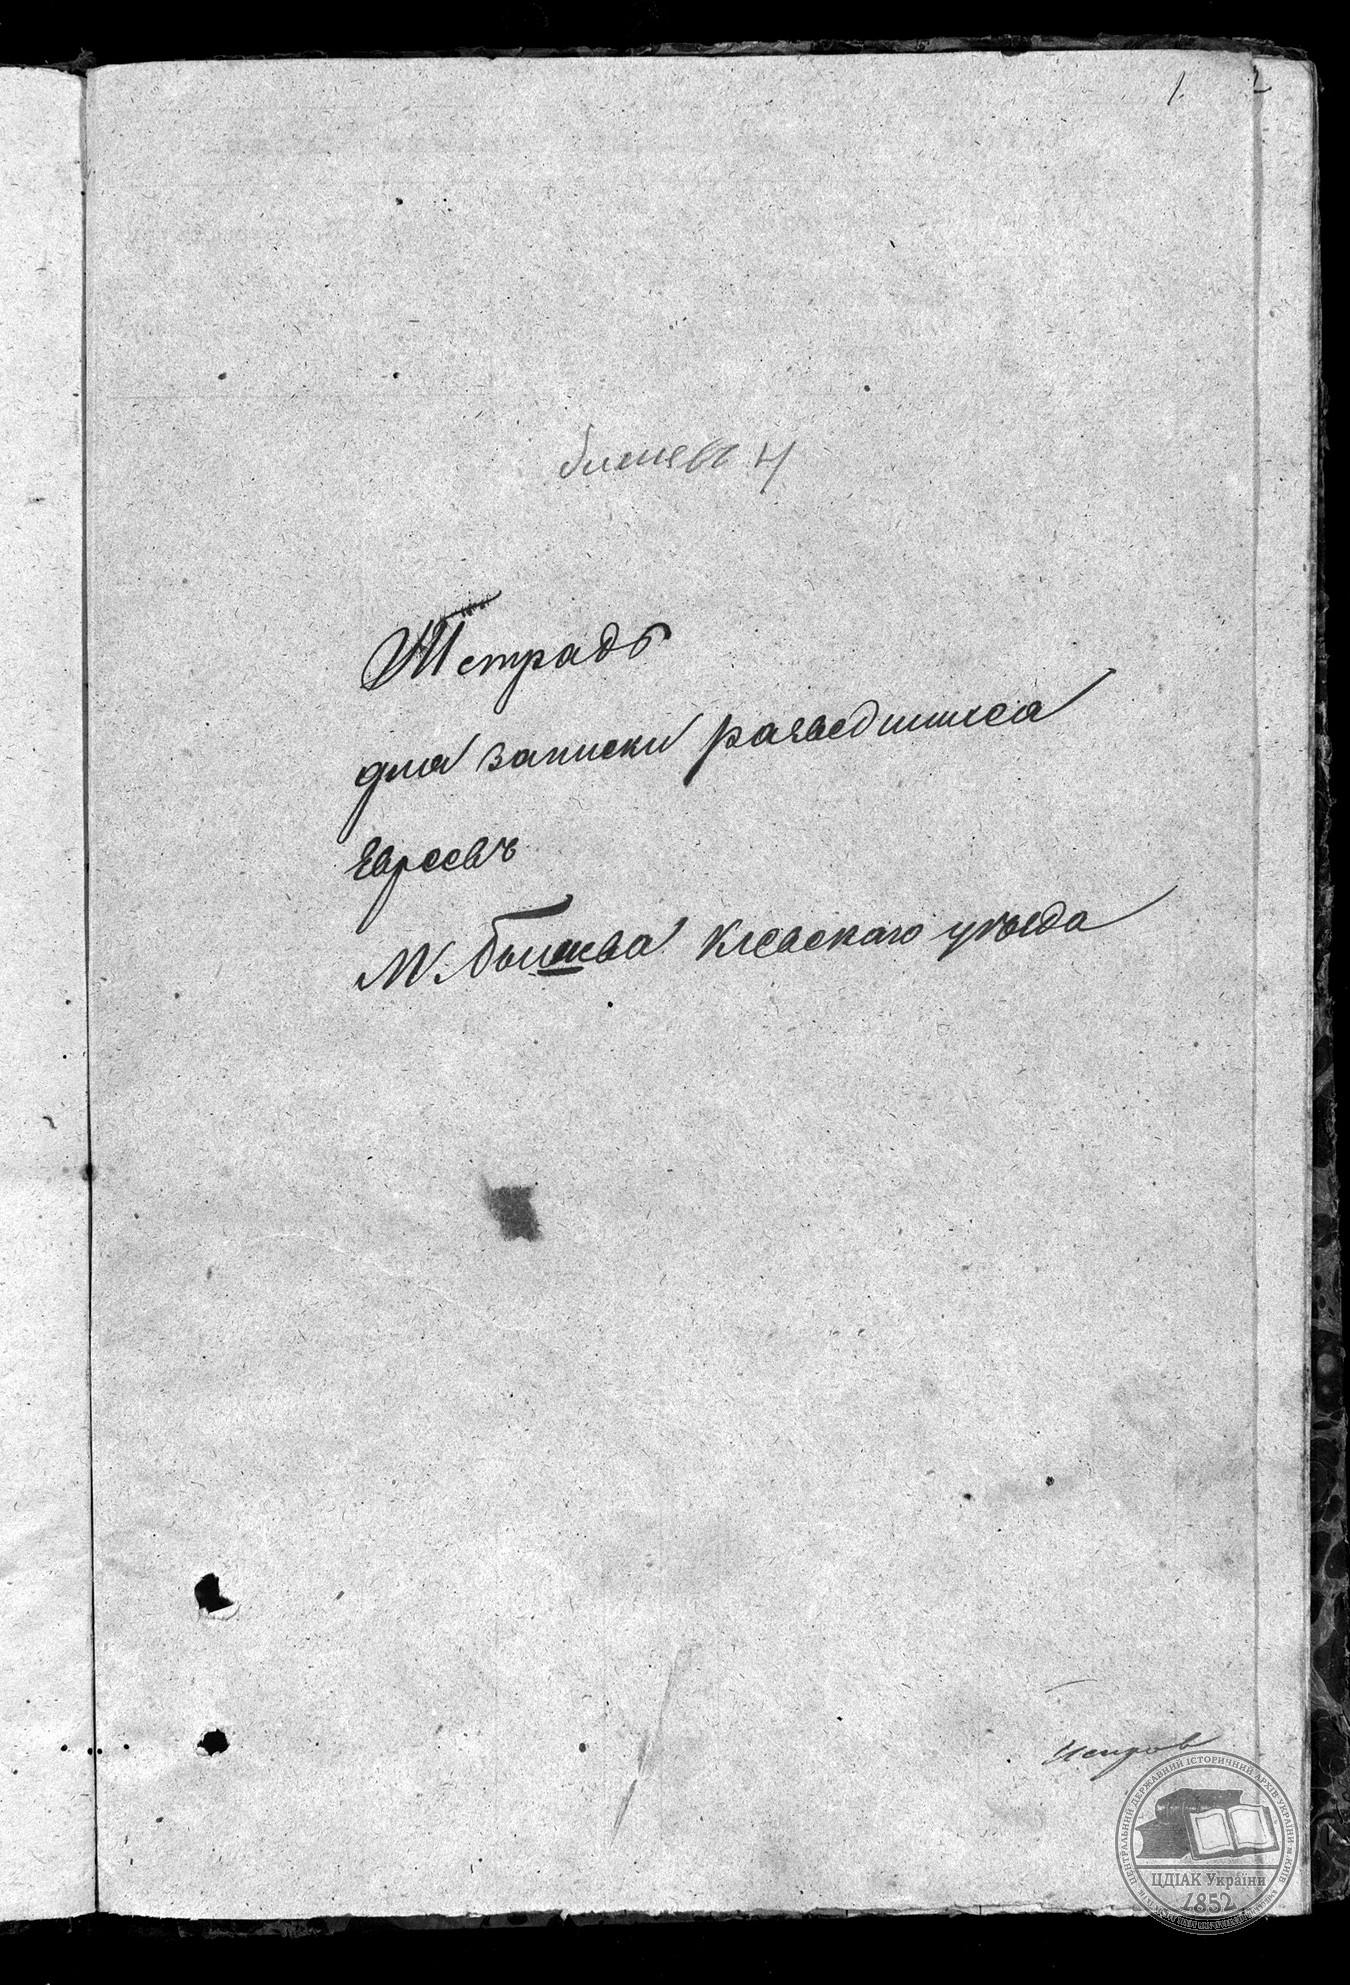 1. 2
бышевъ 4
Тетрадь
для записки разведшихся
Евреевъ
М. Бышева Кіевскаго уѣзда
ЦЕНТРАЛЬНИЙ ДЕРЖАВНИЙ ІСТОРИЧНИЙ АРХІВ УКРАЇНИ, м. КИЇВ
ЦДІАК України
1852